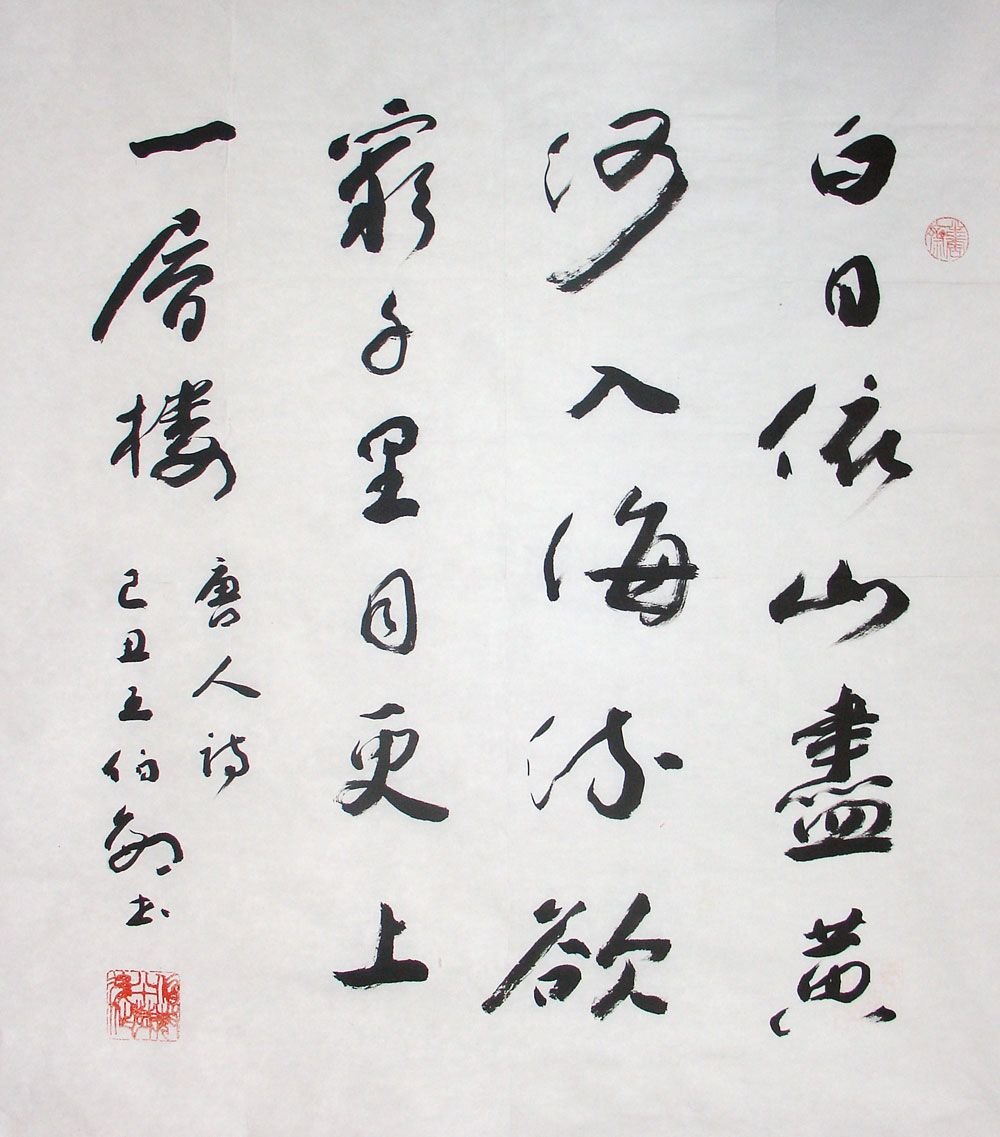 白日依山盡黄
河入海流欲
窮千里目更上
一層楼
唐人詩
己丑王伯勋书